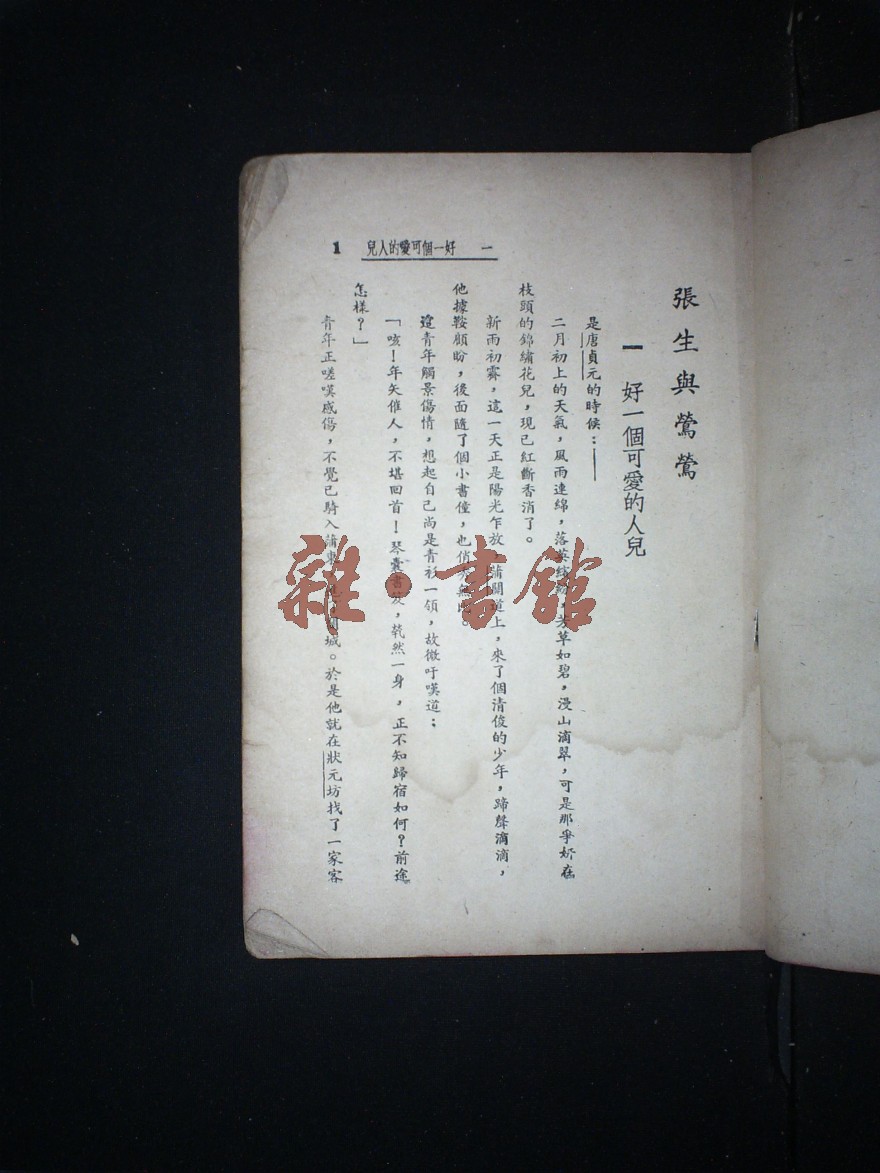 張生與鶯鶯
一 好一個可愛的人兒
是唐貞元的時候：——
二月初上的天氣，風雨連綿，落英繽紛，芳草如碧，漫山滴翠，可是那爭妍在
枝頭的錦繡花兒，現已紅斷香消了。
新雨初霽，這一天正是陽光乍放，蒲關道上，來了個清俊的少年，蹄聲滴滴，
他據鞍顧盼，後面隨了個小書僮，也俏
這青年觸景傷情，想起自己尚是青衫一領，故微吁嘆道：
「咳！年矢催人，不堪回首！琴囊書笈，煢然一身，正不知歸宿如何？前途
怎樣？」
青年正嗟嘆感傷，不覺已騎入蒲東 城。於是他就在狀元坊找了一家客
一 好一個可愛的人兒 1
雜·書館